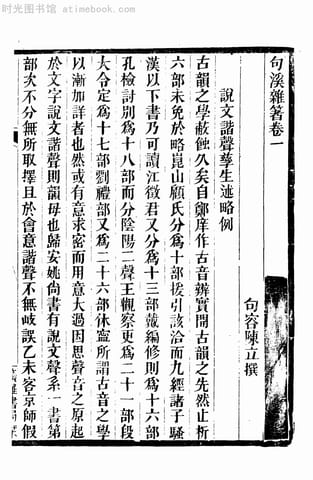 时光图书馆 atimebook.com
句溪雜著卷一
句容陳立撰
說文諧聲孳生述略例
古韻之學蔽蝕久矣自鄭庠作古音辨實開古韻之先然止析
六部未免於略崑山顧氏分爲十部援引該洽而九經諸子騷
漢以下書乃可讀江徵君又分爲十三部戴編修則爲十六部
孔檢討别爲十八部而分陰陽二聲王觀察更爲二十一部段
大令定爲十七部劉禮部又爲二十六部休寧所謂古音之學
以漸加詳者也然或有意求密而用意大過因思聲音之原起
於文字說文諧聲則韻母也歸安姚尙書有說文聲系一書第
部次不分無所取擇且於會意諧聲不無岐誤乙未客京師假